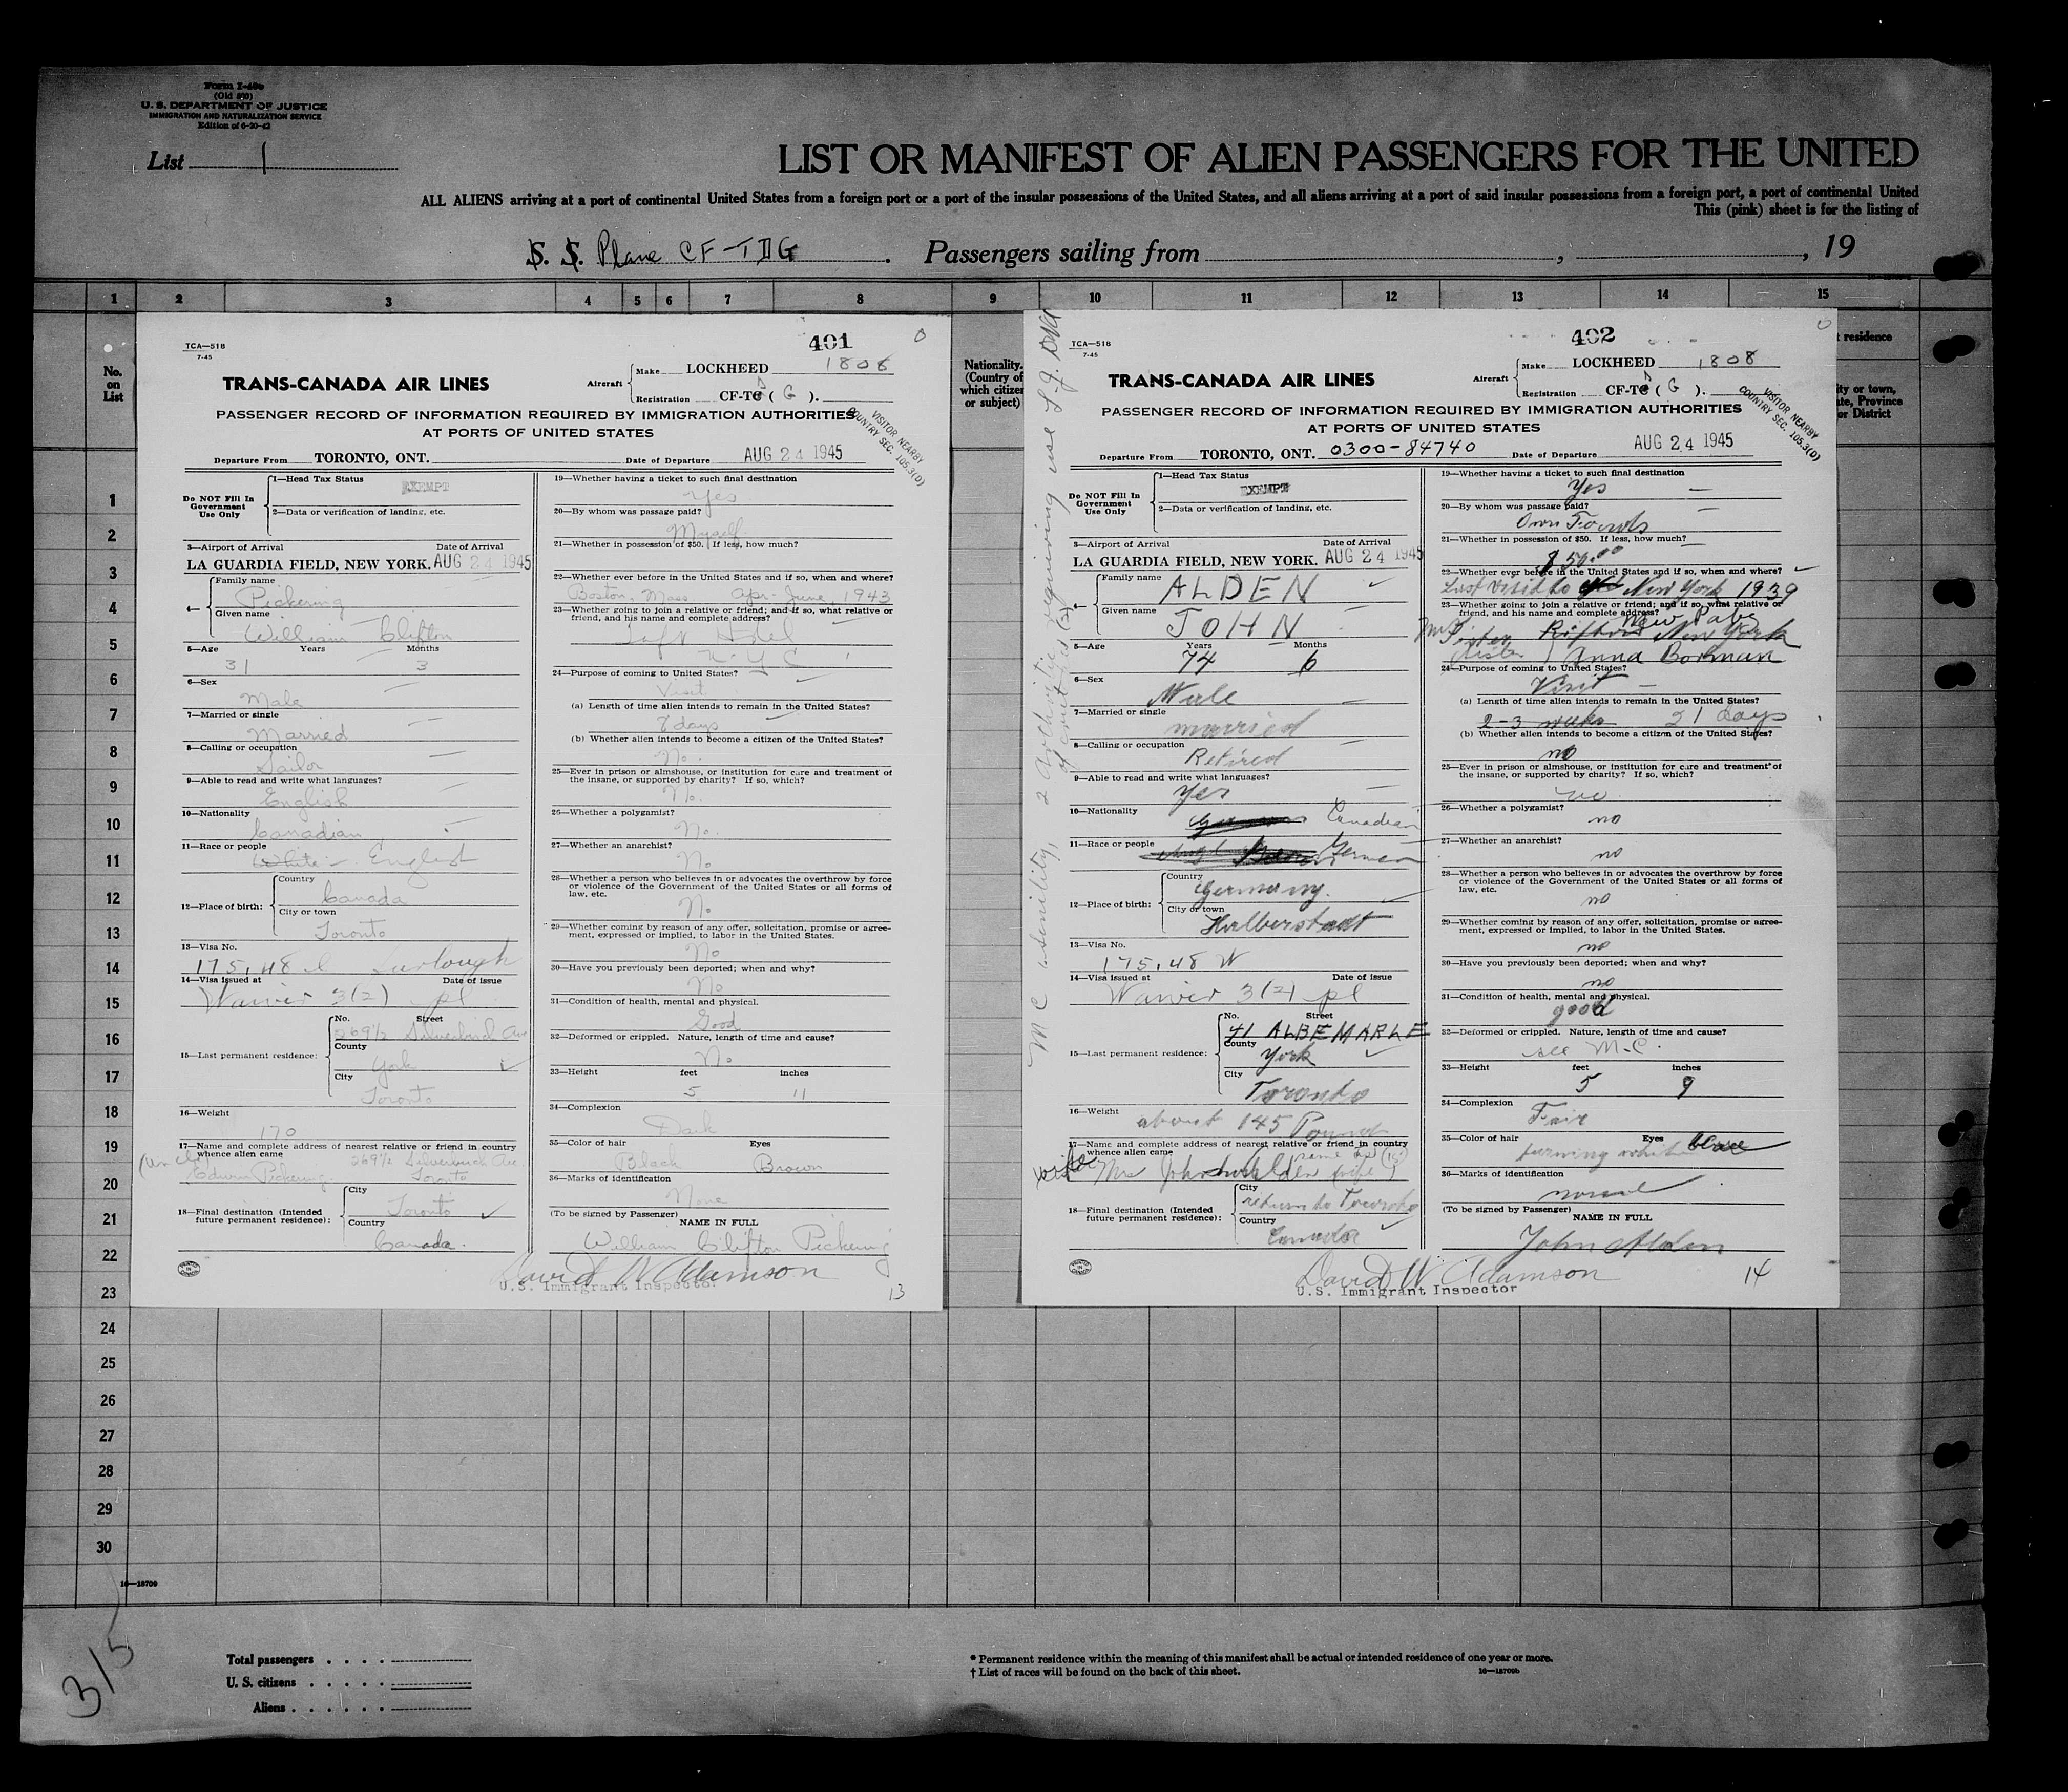 Form I-480
(Old 500)
U. S. DEPARTMENT OF JUSTICE
IMMIGRATION AND NATURALIZATION SERVICE
Edition of 6-20-42
List 1
LIST OR MANIFEST OF ALIEN PASSENGERS FOR THE UNITED
ALL ALIENS arriving at a port of continental United States from a foreign port or a port of the insular possessions of the United States, and all aliens arriving at a port of said insular possessions from a foreign port, a port of continental United
This (pink) sheet is for the listing of
S. S. Plane CF-TDG . Passengers sailing from , , 19
1 2 3 4 5 6 7 8 9 10 11 12 13 14 15
No.
on
List
Nationality.
(Country of
which citizen
or subject)
residence
ity or town,
ate, Province
or District
TCA—518
7-45
401
0
Make LOCKHEED 1808
TRANS-CANADA AIR LINES
Aircraft
Registration CF-TC D ( G ).
PASSENGER RECORD OF INFORMATION REQUIRED BY IMMIGRATION AUTHORITIES
AT PORTS OF UNITED STATES
VISITOR NEARBY
COUNTRY SEC. 105.3(D)
Departure From TORONTO, ONT. Date of Departure AUG 24 1945
Do NOT Fill In
Government
Use Only
1—Head Tax Status EXEMPT
2—Data or verification of landing, etc.
3—Airport of Arrival Date of Arrival
LA GUARDIA FIELD, NEW YORK. AUG 24 1945
4— Family name
Pickering
Given name
William Clifton
5—Age Years Months
31 3
6—Sex
Male
7—Married or single
Married
8—Calling or occupation
Sailor
9—Able to read and write what languages?
English
10—Nationality
Canadian
11—Race or people
White - English
12—Place of birth: Country
Canada
City or town
Toronto
13—Visa No.
175.48 furlough
14—Visa issued at Date of issue
Waiver 3(2) pl
15—Last permanent residence: No. Street
269½ Silverbirch Ave
County
York
City
Toronto
16—Weight
170
17—Name and complete address of nearest relative or friend in country
whence alien came
(Uncle) 269½ Silverbirch Ave.
Edwin Pickering Toronto
18—Final destination (Intended
future permanent residence): City
Toronto
Country
Canada.
19—Whether having a ticket to such final destination
Yes
20—By whom was passage paid?
Myself.
21—Whether in possession of $50. If less, how much?
22—Whether ever before in the United States and if so, when and where?
Boston, Mass. Apr-June, 1943
23—Whether going to join a relative or friend; and if so, what relative or
friend, and his name and complete address?
Taft Hotel
N.Y.C
24—Purpose of coming to United States?
Visit
(a) Length of time alien intends to remain in the United States?
8 days
(b) Whether alien intends to become a citizen of the United States?
No.
25—Ever in prison or almshouse, or institution for care and treatment of
the insane, or supported by charity? If so, which?
No.
26—Whether a polygamist?
No.
27—Whether an anarchist?
No
28—Whether a person who believes in or advocates the overthrow by force
or violence of the Government of the United States or all forms of
law, etc.
No
29—Whether coming by reason of any offer, solicitation, promise or agree-
ment, expressed or implied, to labor in the United States.
No
30—Have you previously been deported; when and why?
No
31—Condition of health, mental and physical.
Good
32—Deformed or crippled. Nature, length of time and cause?
No
33—Height feet inches
5 11
34—Complexion
Dark
35—Color of hair Eyes
Black Brown
36—Marks of identification
None
(To be signed by Passenger)
NAME IN FULL
William Clifton Pickering
David W. Adamson
U.S. Immigrant Inspector
13
TCA—518
7-45
402
0
Make LOCKHEED 1808
TRANS-CANADA AIR LINES
Aircraft
Registration CF-TC D ( G ).
PASSENGER RECORD OF INFORMATION REQUIRED BY IMMIGRATION AUTHORITIES
AT PORTS OF UNITED STATES
VISITOR NEARBY
COUNTRY SEC. 105.3(D)
0300-84740
Departure From TORONTO, ONT. Date of Departure AUG 24 1945
M C senility, 2 requiring use
Do NOT Fill In
Government
Use Only
1—Head Tax Status EXEMPT
2—Data or verification of landing, etc.
3—Airport of Arrival Date of Arrival
LA GUARDIA FIELD, NEW YORK. AUG 24 1945
4— Family name
ALDEN
Given name
JOHN
5—Age Years Months
74 6
6—Sex
Male
7—Married or single
married
8—Calling or occupation
Retired
9—Able to read and write what languages?
yes
10—Nationality
Canadian
11—Race or people
German
12—Place of birth: Country
Germany.
City or town
Halberstadt
13—Visa No.
175.48 W
14—Visa issued at Date of issue
Waiver 3(2) pl
15—Last permanent residence: No. Street
41 ALBEMARLE
County
York
City
Toronto
16—Weight
about 145 Pound
17—Name and complete address of nearest relative or friend in country
whence alien came
same as (15)
wife Mrs John Alden wife
18—Final destination (Intended
future permanent residence): City
return to Toronto
Country
Canada
19—Whether having a ticket to such final destination
Yes
20—By whom was passage paid?
Own Founds
21—Whether in possession of $50. If less, how much?
$50.00
22—Whether ever before in the United States and if so, when and where?
Last visit to New York 1939
23—Whether going to join a relative or friend; and if so, what relative or
friend, and his name and complete address?
Sister Rifton New York
sister Anna Borman
24—Purpose of coming to United States?
Visit
(a) Length of time alien intends to remain in the United States?
2-3 weeks 21 days
(b) Whether alien intends to become a citizen of the United States?
no
25—Ever in prison or almshouse, or institution for care and treatment of
the insane, or supported by charity? If so, which?
no
26—Whether a polygamist?
no
27—Whether an anarchist?
no
28—Whether a person who believes in or advocates the overthrow by force
or violence of the Government of the United States or all forms of
law, etc.
no
29—Whether coming by reason of any offer, solicitation, promise or agree-
ment, expressed or implied, to labor in the United States.
no
30—Have you previously been deported; when and why?
no
31—Condition of health, mental and physical.
good
32—Deformed or crippled. Nature, length of time and cause?
see M.C.
33—Height feet inches
5 9
34—Complexion
Fair
35—Color of hair Eyes
turning white blue
36—Marks of identification
normal
(To be signed by Passenger)
NAME IN FULL
John Alden
David W. Adamson
U.S. Immigrant Inspector
14
1
2
3
4
5
6
7
8
9
10
11
12
13
14
15
16
17
18
19
20
21
22
23
24
25
26
27
28
29
30
16—18709
315
Total passengers
U. S. citizens
Aliens
* Permanent residence within the meaning of this manifest shall be actual or intended residence of one year or more.
† List of races will be found on the back of this sheet.
16—18709b